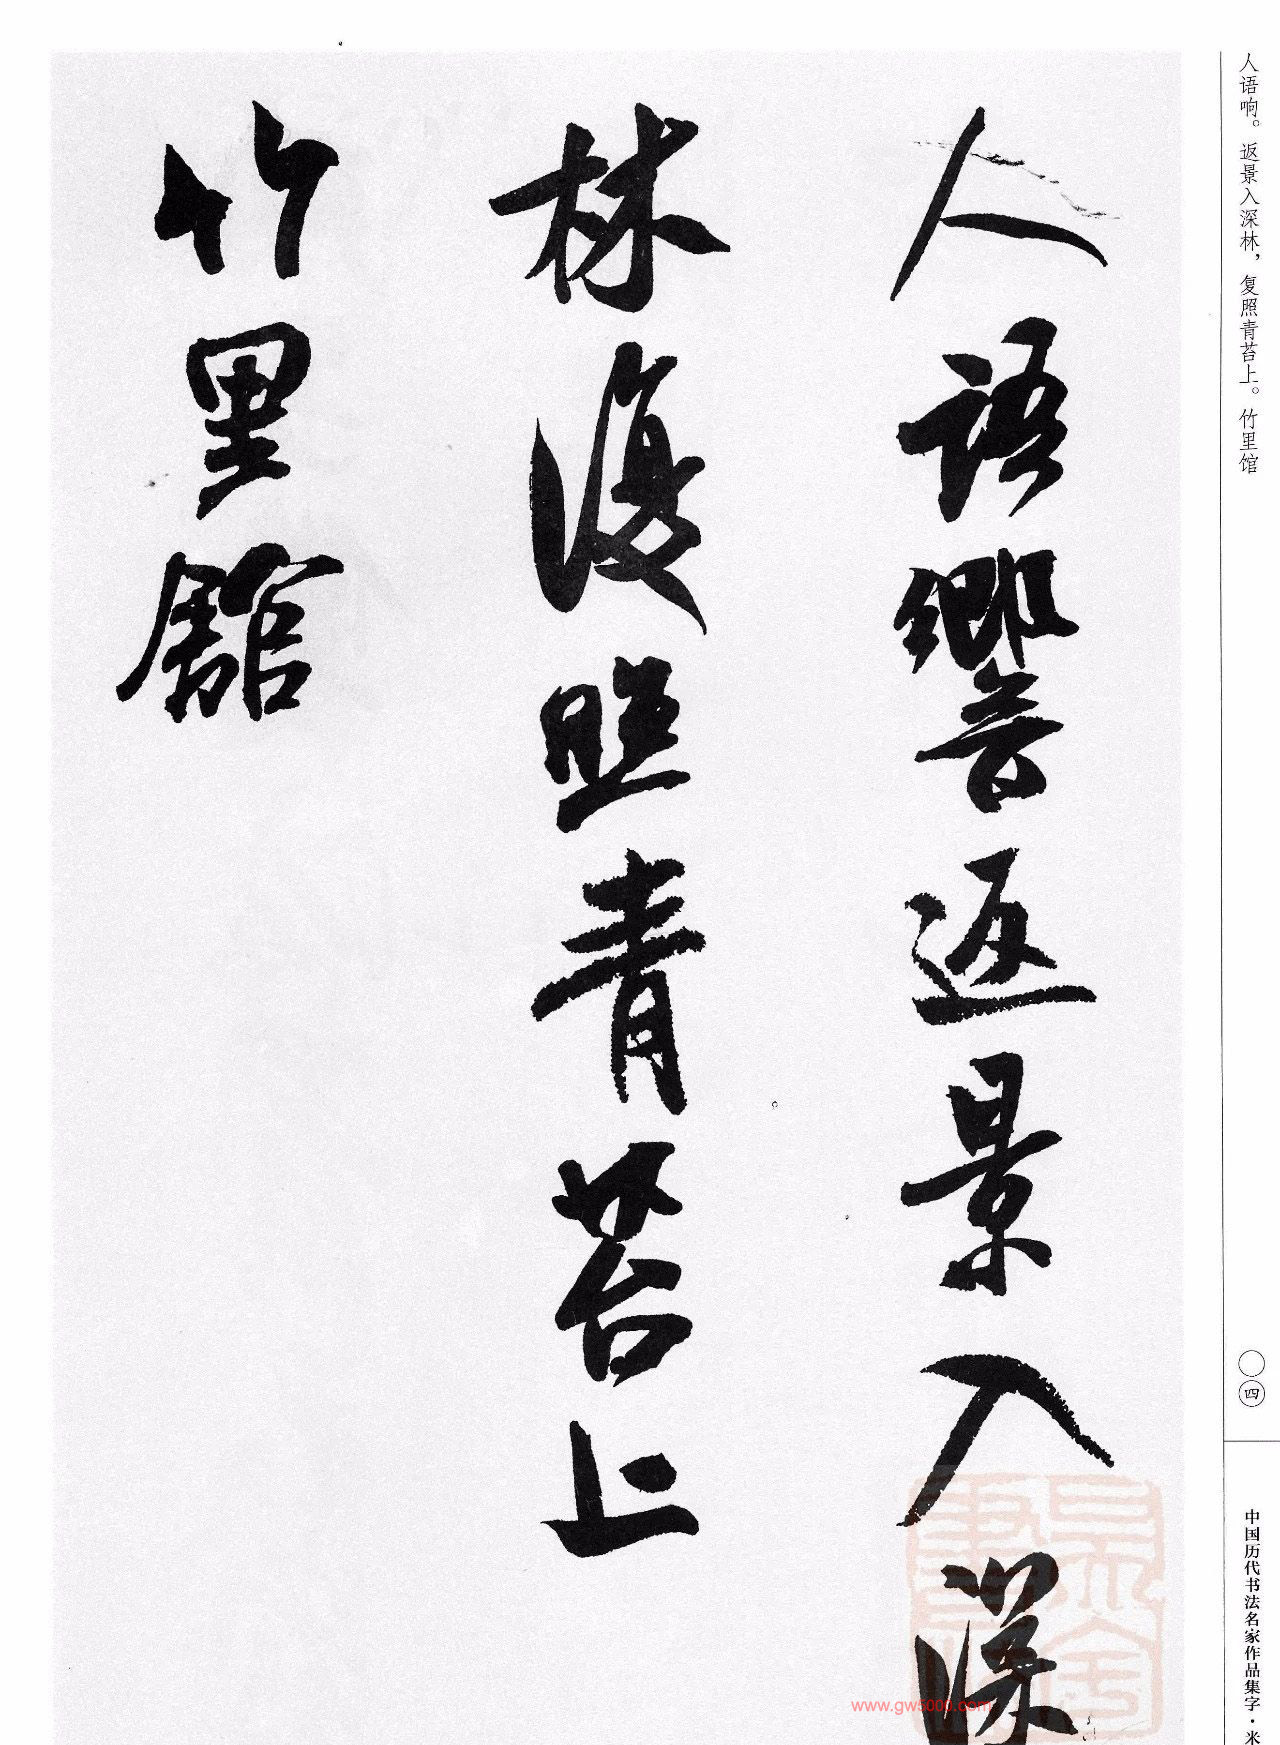 人语响。返景入深林，复照青苔上。竹里馆
人語響返景入深
林復照青苔上
竹里館
〇四
中国历代书法名家作品集字·米
www.gw5000.com